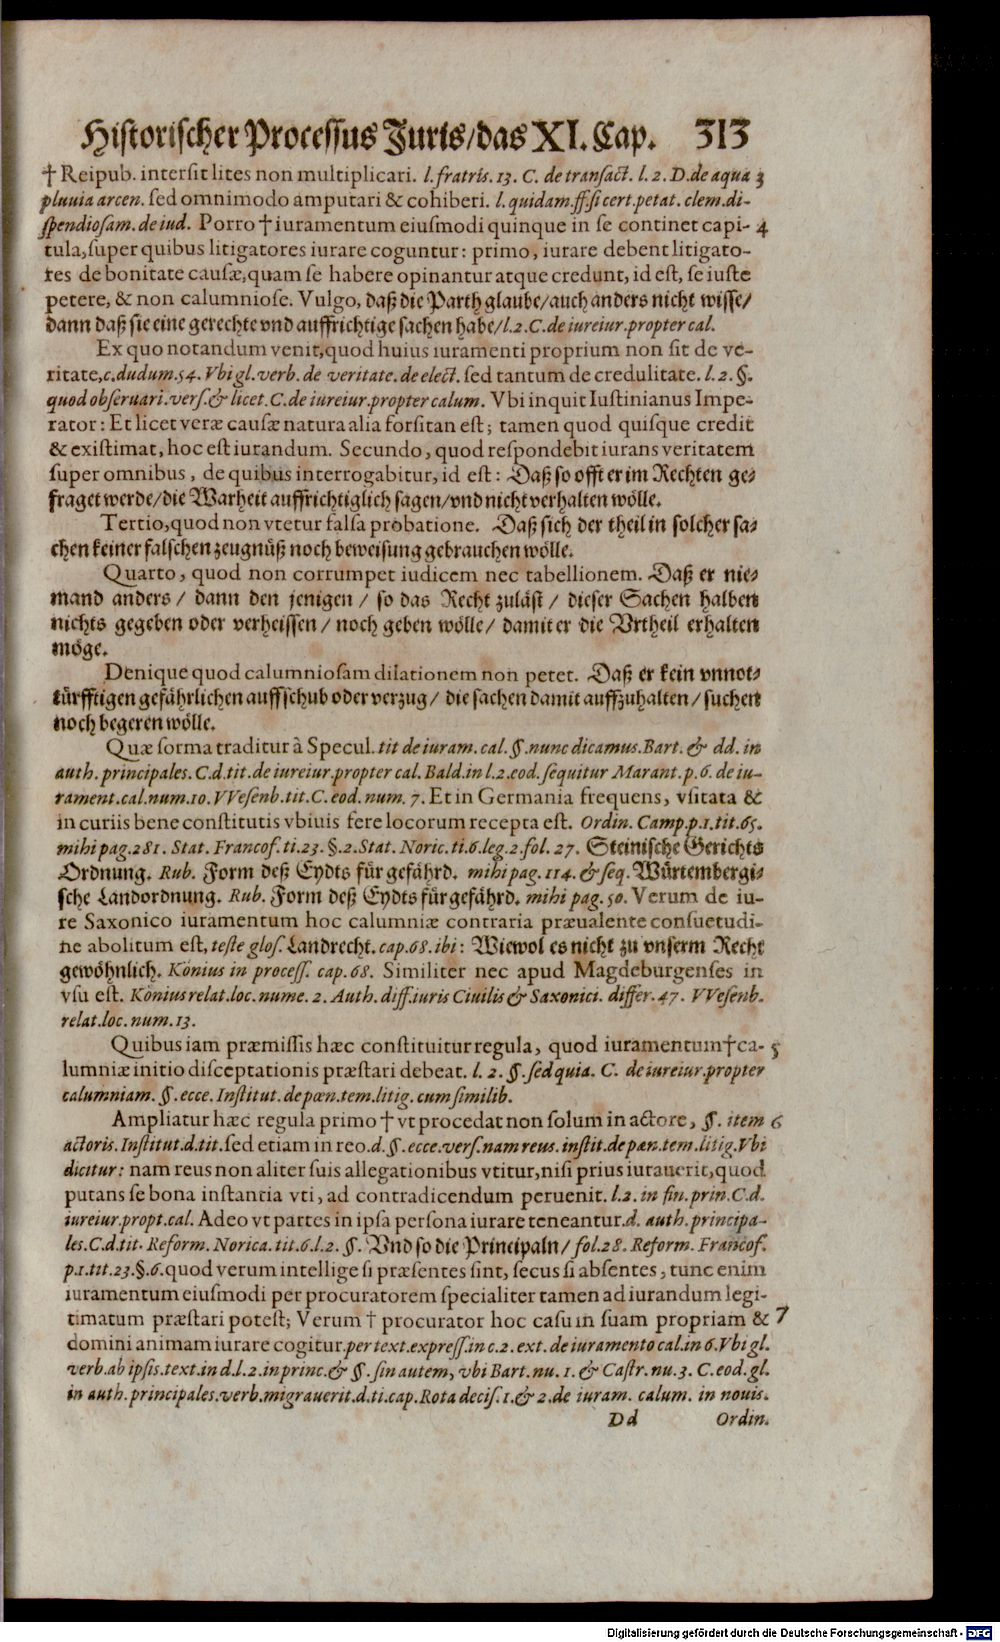 Historischer Processus Juris/das XI. Cap. 313
† Reipub. intersit lites non multiplicari. l. fratris. 13. C. de transact. l. 2. D. de aqua 3
pluuia arcen. sed omnimodo amputari & cohiberi. l. quidam. ff. si cert. petat. clem. di-
spendiosam. de iud. Porro † iuramentum eiusmodi quinque in se continet capi- 4
tula, super quibus litigatores iurare coguntur: primo, iurare debent litigato-
res de bonitate causæ, quam se habere opinantur atque credunt, id est, se iuste
petere, & non calumniose. Vulgo, daß die Parth glaube/auch anders nicht wisse/
dann daß sie eine gerechte vnd auffrichtige sachen habe/l. 2. C. de iureiur. propter cal.
Ex quo notandum venit, quod huius iuramenti proprium non sit de ve-
ritate, c. dudum. 54. Vbi gl. verb. de veritate. de elect. sed tantum de credulitate. l. 2. §.
quod obseruari. vers. & licet. C. de iureiur. propter calum. Vbi inquit Iustinianus Impe-
rator: Et licet veræ causæ natura alia forsitan est; tamen quod quisque credit
& existimat, hoc est iurandum. Secundo, quod respondebit iurans veritatem
super omnibus, de quibus interrogabitur, id est: Daß so offt er im Rechten ge-
fraget werde/die Warheit auffrichtiglich sagen/vnd nicht verhalten wölle.
Tertio, quod non vtetur falsa probatione. Daß sich der theil in solcher sa-
chen keiner falschen zeugnüß noch beweisung gebrauchen wölle.
Quarto, quod non corrumpet iudicem nec tabellionem. Daß er nie-
mand anders / dann den jenigen / so das Recht zuläst / dieser Sachen halben
nichts gegeben oder verheissen / noch geben wölle / damit er die Vrtheil erhalten
möge.
Denique quod calumniosam dilationem non petet. Daß er kein vnnot-
türfftigen gefährlichen auffschub oder verzug / die sachen damit auffzuhalten / suchen
noch begeren wölle.
Quæ forma traditur à Specul. tit de iuram. cal. §. nunc dicamus. Bart. & dd. in
auth. principales. C. d. tit. de iureiur. propter cal. Bald. in l. 2. eod. sequitur Marant. p. 6. de iu-
rament. cal. num. 10. VVesenb. tit. C. eod. num. 7. Et in Germania frequens, vsitata &
in curiis bene constitutis vbiuis fere locorum recepta est. Ordin. Camp. p. 1. tit. 65.
mihi pag. 281. Stat. Francof. ti. 23. §. 2. Stat. Noric. ti. 6. leg. 2. fol. 27. Steinische Gerichts
Ordnung. Rub. Form deß Eydts für gefährd. mihi pag. 114. & seq. Würtembergi-
sche Landordnung. Rub. Form deß Eydts für gefährd. mihi pag. 50. Verum de iu-
re Saxonico iuramentum hoc calumniæ contraria præualente consuetudi-
ne abolitum est, teste glos. Landrecht. cap. 68. ibi: Wiewol es nicht zu vnserm Recht
gewöhnlich. Könius in process. cap. 68. Similiter nec apud Magdeburgenses in
vsu est. Könius relat. loc. nume. 2. Auth. diff. iuris Civilis & Saxonici. differ. 47. VVesenb.
relat. loc. num. 13.
Quibus iam præmissis hæc constituitur regula, quod iuramentum † ca- 5
lumniæ initio disceptationis præstari debeat. l. 2. §. sed quia. C. de iureiur. propter
calumniam. §. ecce. Institut. de pœn. tem. litig. cum similib.
Ampliatur hæc regula primo † vt procedat non solum in actore, §. item 6
actoris. Institut. d. tit. sed etiam in reo. d. §. ecce. vers. nam reus. instit. de pœn. tem. litig. Vbi
dicitur: nam reus non aliter suis allegationibus vtitur, nisi prius iurauerit, quod
putans se bona instantia vti, ad contradicendum peruenit. l. 2. in fin. prin. C. d.
iureiur. propt. cal. Adeo vt partes in ipsa persona iurare teneantur. d. auth. principa-
les. C. d. tit. Reform. Norica. tit. 6. l. 2. §. Vnd so die Principaln / fol. 28. Reform. Francof.
p. 1. tit. 23. §. 6. quod verum intellige si præsentes sint, secus si absentes, tunc enim
iuramentum eiusmodi per procuratorem specialiter tamen ad iurandum legi-
timatum præstari potest; Verum † procurator hoc casu in suam propriam & 7
domini animam iurare cogitur. per text. express. in c. 2. ext. de iuramento cal. in 6. Vbi gl.
verb. ab ipsis. text. in d. l. 2. in princ. & §. sin autem, vbi Bart. nu. 1. & Castr. nu. 3. C. eod. gl.
in auth. principales. verb. migrauerit. d. ti. cap. Rota decis. 1. & 2. de iuram. calum. in nouis.
Dd Ordin.
Digitalisierung gefördert durch die Deutsche Forschungsgemeinschaft - DFG